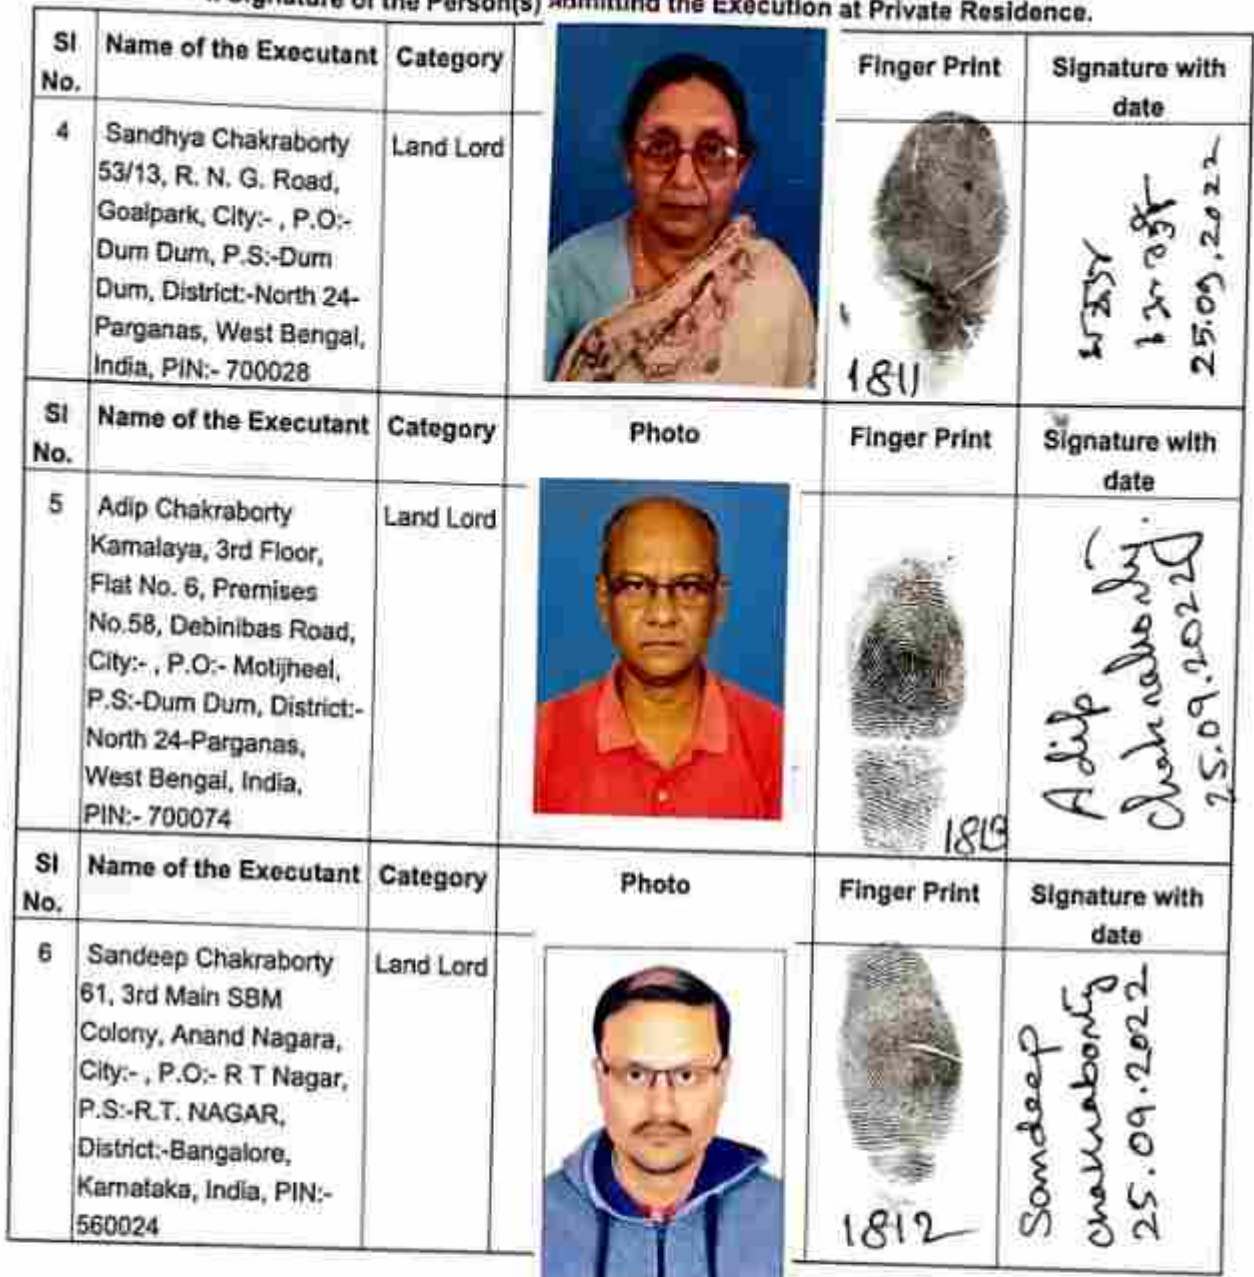 Signature of the Person(s) Admitting the Execution at Private Residence.
Sl No. Name of the Executant Category Finger Print Signature with date
4 Sandhya Chakraborty Land Lord
53/13, R. N. G. Road,
Goalpark, City:- , P.O:-
Dum Dum, P.S:-Dum
Dum, District:-North 24-
Parganas, West Bengal,
India, PIN:- 700028
1811
25.09.2022
Sl No. Name of the Executant Category Photo Finger Print Signature with date
5 Adip Chakraborty Land Lord
Kamalaya, 3rd Floor,
Flat No. 6, Premises
No.58, Debinibas Road,
City:- , P.O:- Motijheel,
P.S:-Dum Dum, District:-
North 24-Parganas,
West Bengal, India,
PIN:- 700074
1813
Adip
Chakraborty.
25.09.2022
Sl No. Name of the Executant Category Photo Finger Print Signature with date
6 Sandeep Chakraborty Land Lord
61, 3rd Main SBM
Colony, Anand Nagara,
City:- , P.O:- R T Nagar,
P.S:-R.T. NAGAR,
District:-Bangalore,
Karnataka, India, PIN:-
560024
1812
Sandeep
Chakraborty
25.09.2022